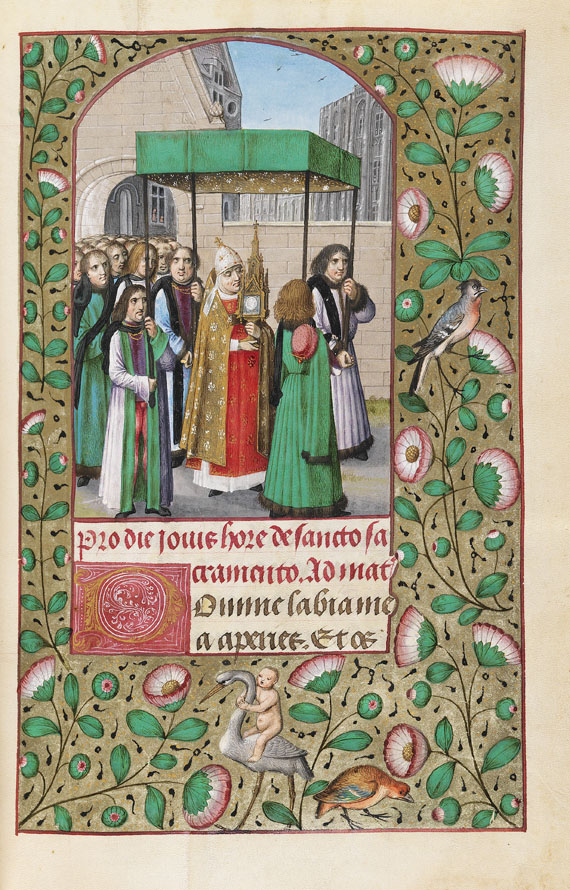 Pro die iovis hore de sancto sa
cramento. Ad mat
Domine labia me
a aperies. Et os